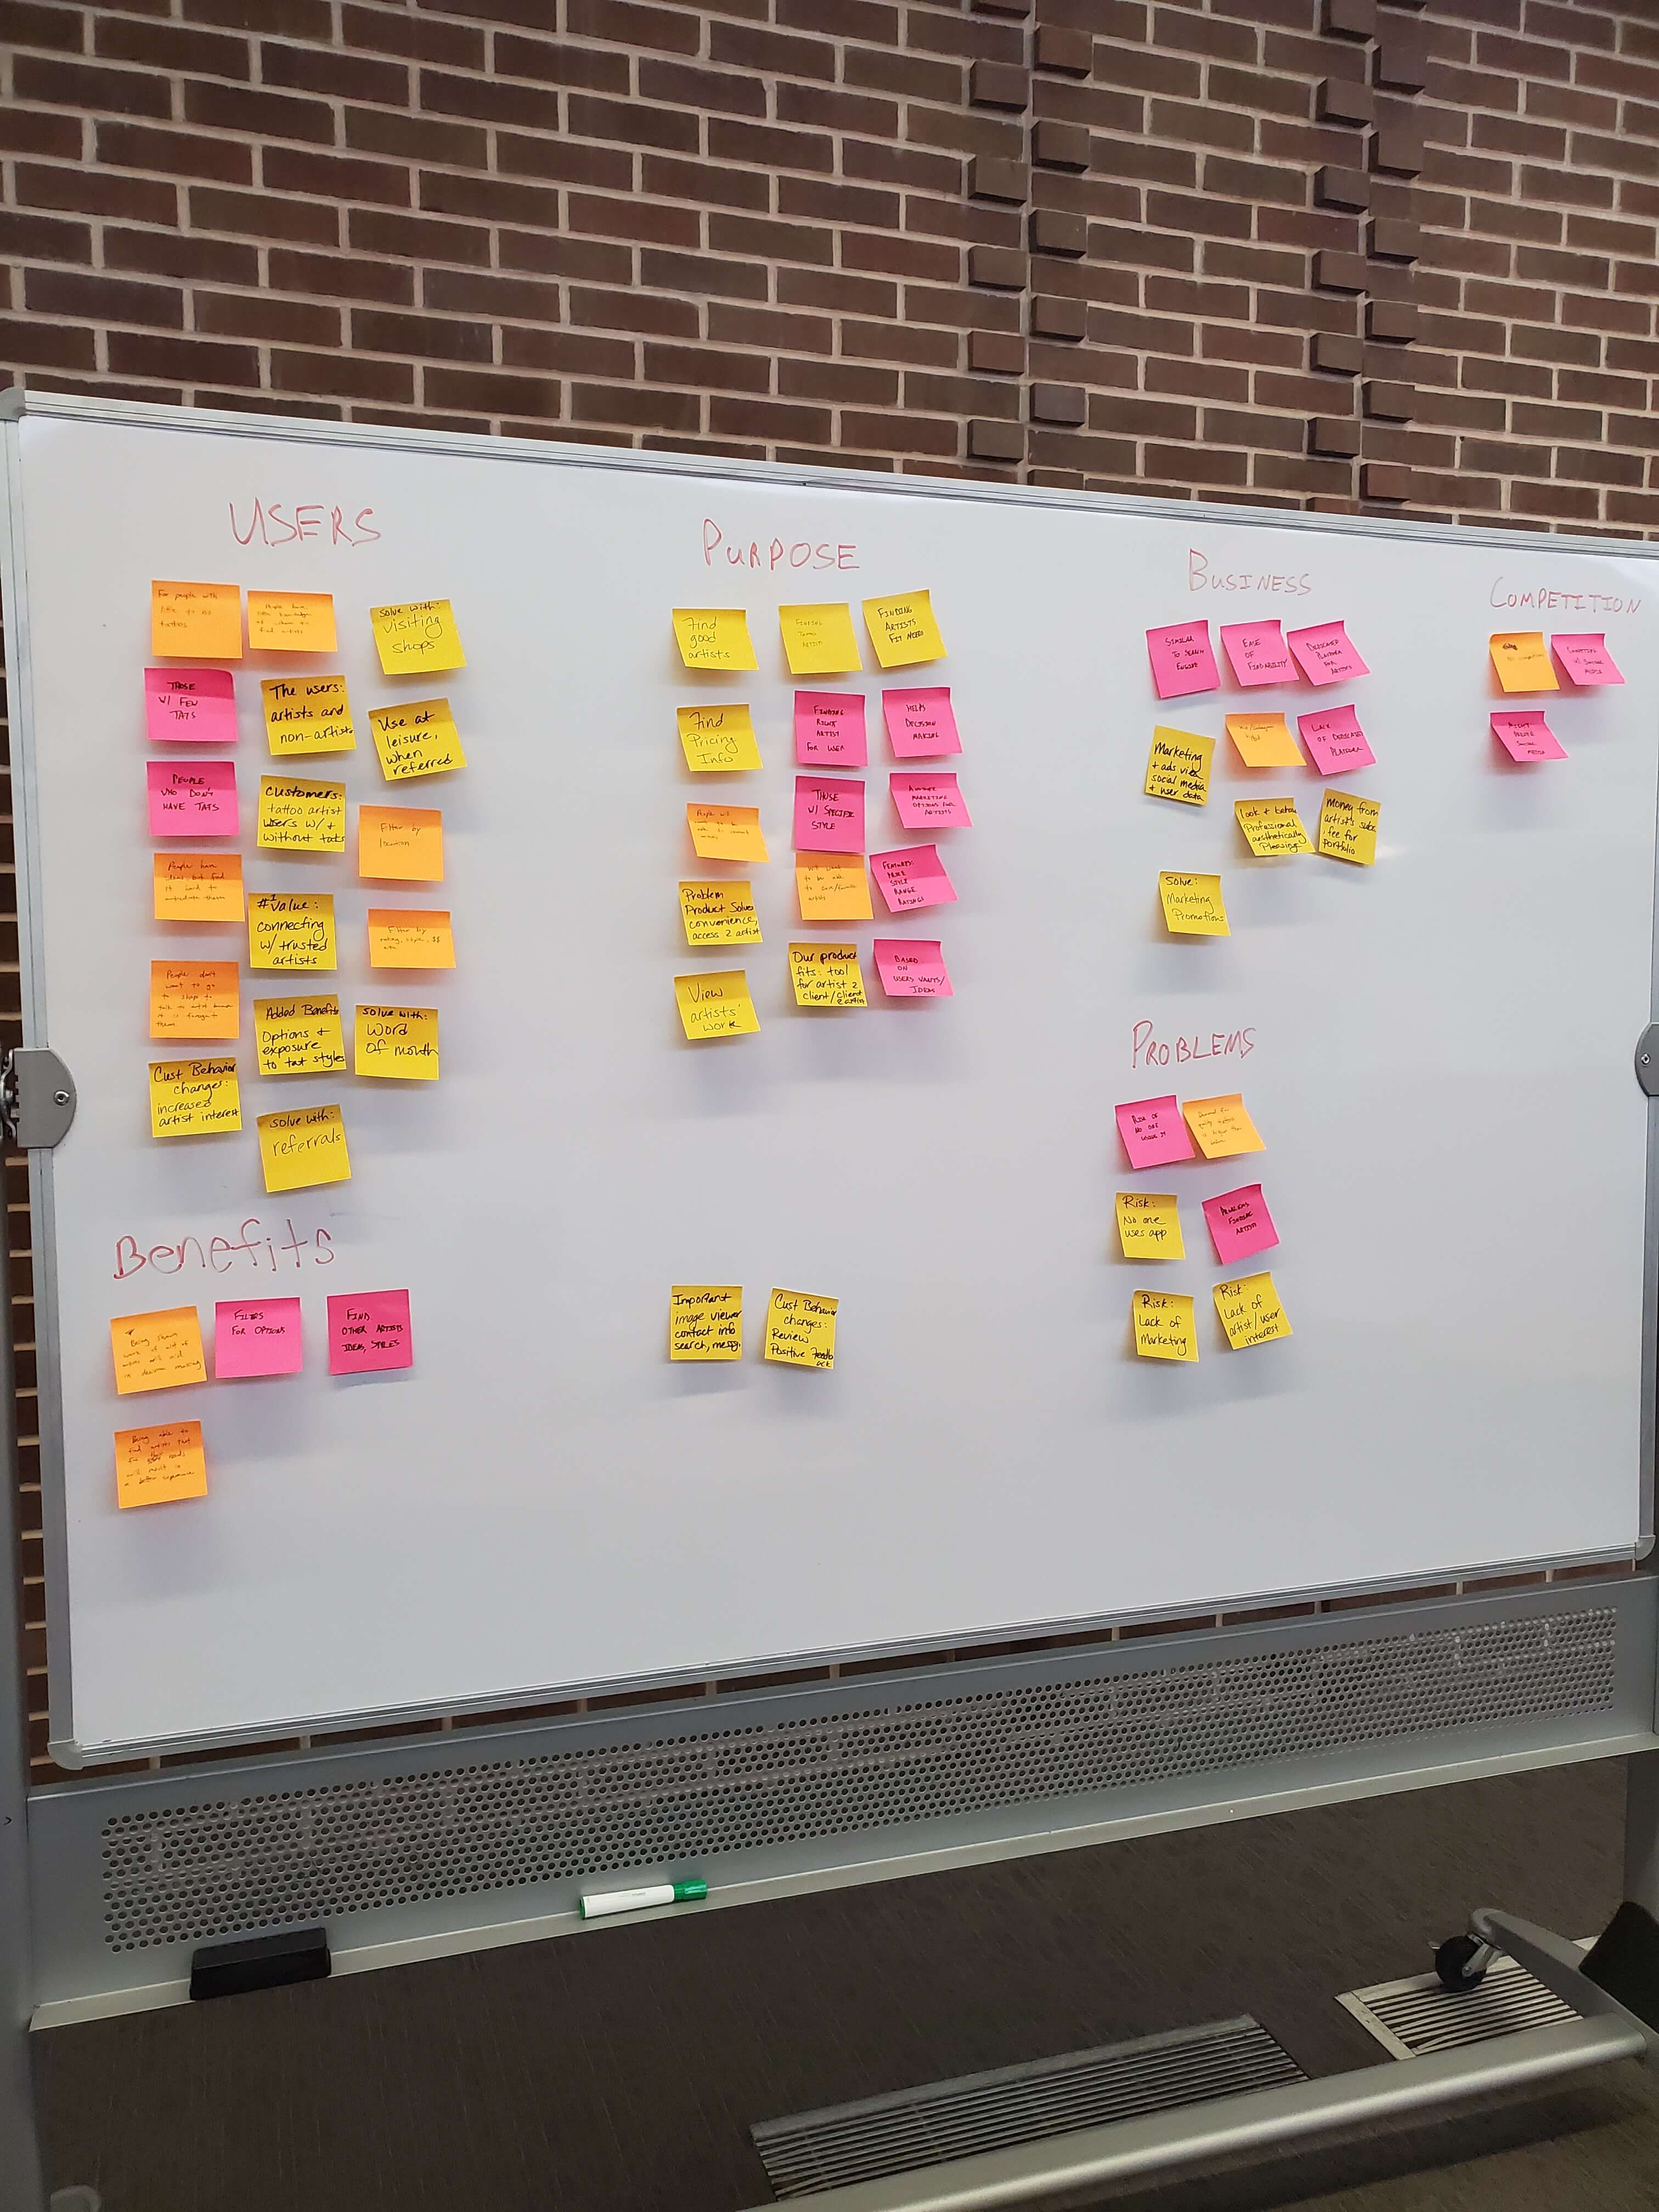 USERS
For people with
little to no
tattoos
People have
little knowledge
of where to
find artists
Solve with:
visiting
shops
THOSE
W/ FEW
TATS
The users:
artists and
non-artists
Use at
leisure,
when
referred
PEOPLE
WHO DON'T
HAVE TATS
Customers:
tattoo artist
users w/ +
without tats
Filter by
location
People have
ideas, but find
it hard to
articulate them
#1 Value:
connecting
w/ trusted
artists
Filter by
rating, style, $$
etc.
People don't
want to go
to shop to
talk to artist because
it is foreign to
them
Added Benefit:
Options +
exposure
to tat styles
Solve with:
Word
of mouth
Cust Behavior
changes:
increased
artist interest
Solve with:
referrals
Benefits
Being shown
work of
artists will aid
in decision making
FILTERS
FOR OPTIONS
FIND
OTHER ARTISTS
IDEAS, STYLES
Being able to
find artists that
fit their needs
will result in
a better experience
PURPOSE
Find
good
artists
FINDING
ARTIST
FINDING
ARTISTS
FIT NEED
Find
Pricing
Info
FINDING
RIGHT
ARTIST
FOR USER
HELPS
DECISION
MAKING
People will
want to be
able to
THOSE
W/ SPECIFIC
STYLE
ANOTHER
MARKETING
OPTIONS FOR
ARTISTS
Problem
Product Solves
convenience,
access 2 artist
to be able
to
artists
FEATURES:
PRICE
STYLE
RANGE
RATINGS
View
artists'
work
Our product
fits: tool
for artist 2
client/client
2 artist
BASED
ON
USERS WANTS/
IDEAS
Important
image viewer
contact info
search, messg.
Cust Behavior
changes:
Review
Positive Feedb
ack
BUSINESS
SIMILAR
TO SEARCH
ENGINE
EASE
OF
FINDABILITY
DEDICATED
PLATFORM
FOR
ARTISTS
Marketing
+ ads via
social media
+ user data
LACK
OF DEDICATED
PLATFORM
look + behave
Professional
aesthetically
Pleasing
Money from
artists subs.
fee for
portfolio
Solve:
Marketing
Promotions
PROBLEMS
RISK OF
NO ONE
USING IT
Demand for
quality artists
is higher than
Risk:
No one
uses app
PROBLEMS
FINDING
ARTIST
Risk:
Lack of
Marketing
Risk:
Lack of
artist/user
interest
COMPETITION
competition
COMPETING
W/ SOCIAL
MEDIA
SOCIAL
MEDIA